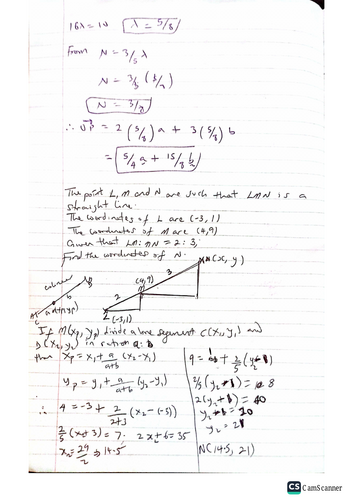 16λ = 10   λ = 5/8
From N = 3/5 λ
N = 3/5 (5/8)
N = 3/8
∴ OP = 2 (5/8) a + 3 (5/8) b
= 5/4 a + 15/8 b
The point L, M and N are such that LMN is a
straight line.
The coordinates of L are (-3, 1)
The coordinates of M are (4, 9)
Given that LM : MN = 2 : 3,
Find the coordinates of N.
N (x, y)
(4, 9)
3
2
M
L (-3, 1)
b
a
C
If M(xp, yp) divide a line segment C(x1, y1) and
D (x2, y2) in ration a:b
then xp = x1 + a/(a+b) (x2 - x1)
yp = y1 + a/(a+b) (y2 - y1)
∴ 4 = -3 + 2/(2+3) (x2 - (-3))
2/5 (x + 3) = 7. 2x + 6 = 35
x2 = 29/2 ⇒ 14.5
2/5 (y2 - 1) = 8
2(y2 - 1) = 40
y2 - 1 = 20
y2 = 21
N(14.5, 21)
CS CamScanner